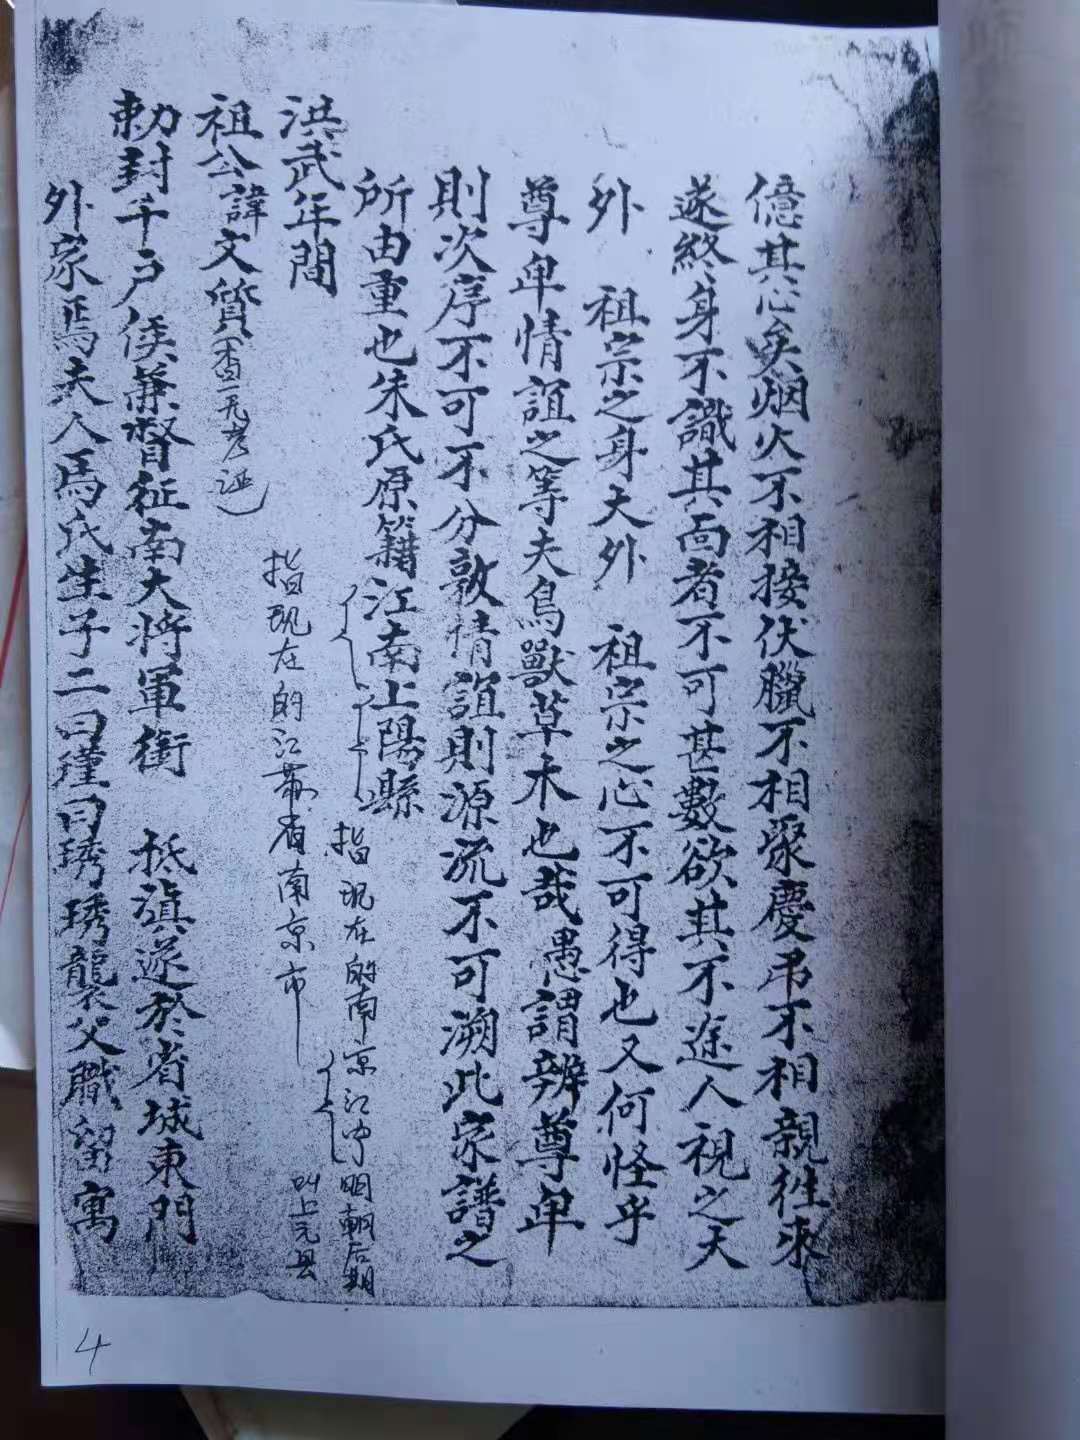 億其心矣烟火不相接伏臘不相聚慶弔不相親徃來
遂終身不識其面者不可甚數欲其不途人視之大
外 祖宗之身大外 祖宗之心不可得也又何怪乎
尊卑情誼之等夫鳥獸草木也哉愚謂辨尊卑
則次序不可不分敦情誼則源流不可溯此家譜之
所由重也朱氏原籍江南上陽縣
指现在的南京江宁明朝后期
叫上元县
洪武年間
指现在的江苏省南京市
祖公諱文質
勅封千户侯兼督征南大将軍銜 抵滇遂於省城東門
外家焉夫人馬氏生子二曰瑾曰琇琇襲父職留寓
4